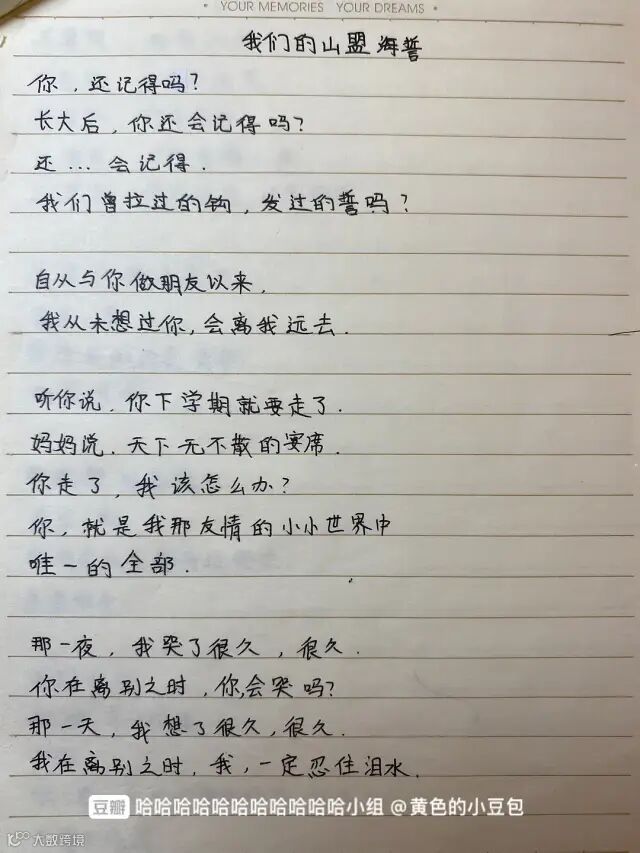 YOUR MEMORIES YOUR DREAMS
我们的山盟海誓
你，还记得吗？
长大后，你还会记得吗？
还...会记得.
我们曾拉过的钩，发过的誓吗？
自从与你做朋友以来.
我从未想过你，会离我远去.
听你说.你下学期就要走了.
妈妈说.天下无不散的宴席.
你走了，我该怎么办？
你，就是我那友情的小小世界中
唯一的全部.
那一夜，我哭了很久，很久.
你在离别之时，你，会哭吗？
那一天，我想了很久，很久.
我在离别之时，我，一定忍住泪水.
豆瓣 哈哈哈哈哈哈哈哈哈哈哈小组 @黄色的小豆包
大数跨境